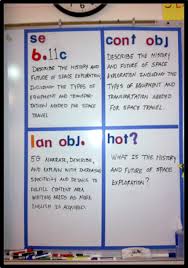 se
6.11c
DESCRIBE THE HISTORY
AND FUTURE OF SPACE
EXPLORATION, INCLUDING
THE TYPES OF
EQUIPMENT AND TRANSPOR-
TATION NEEDED FOR SPACE
TRAVEL.
cont obj
DESCRIBE THE HISTORY
AND FUTURE OF SPACE
EXPLORATION INCLUDING THE
TYPES OF EQUIPMENT AND
TRANSPORTATION NEEDED
FOR SPACE TRAVEL.
lan obj.
5G NARRATE, DESCRIBE,
AND EXPLAIN WITH INCREASING
SPECIFICITY AND DETAILS TO
FULFILL CONTENT AREA
WRITING NEEDS AS MORE
ENGLISH IS ACQUIRED.
hot?
WHAT IS THE HISTORY
AND FUTURE OF SPACE
EXPLORATION?